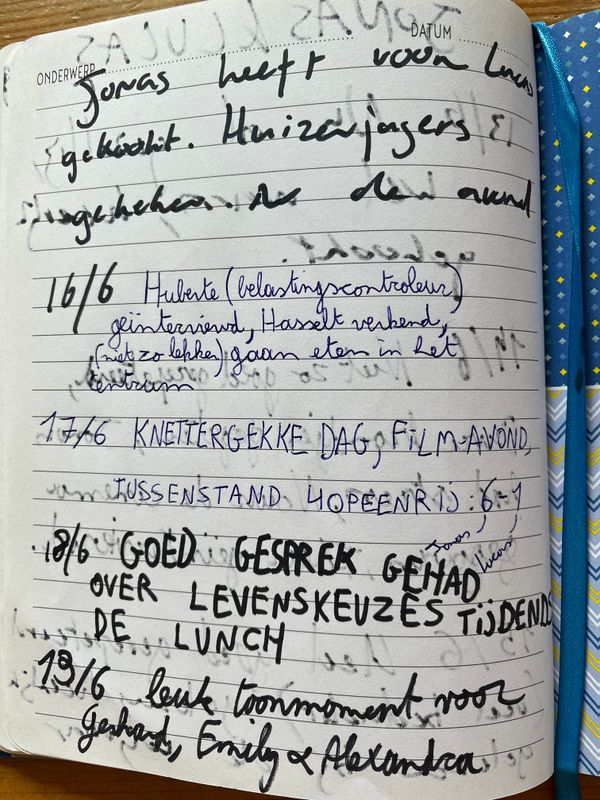 ONDERWERP DATUM
Jonas heeft voor Lucas
gekookt. Huizenjagers
gekeken. de avond
16/6 Huberte (belastingscontroleur)
geïnterviewd, Hasselt verkend,
(niet zo lekker) gaan eten in het
centrum
17/6 KNETTERGEKKE DAG, FILM-AVOND,
TUSSENSTAND 4OPEENRIJ: 6-1
Jonas Lucas
18/6 GOED GESPREK GEHAD
OVER LEVENSKEUZES TIJDENDS
DE LUNCH
19/6 leuk toonmoment voor
Gerhard, Emily & Alexandra